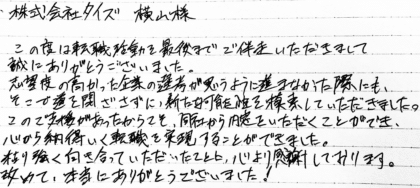 株式会社タイズ 横山様
この度は転職活動を最後までご伴走いただきまして
誠にありがとうございました。
志望度の高かった企業の選考が思うように進まなかった際にも、
そこで道を閉ざさずに、新たな可能性を模索していただきました。
このご支援があったからこそ、同社から内定をいただくことができ、
心から納得いく転職を実現することができました。
粘り強く向き合っていただいたこと、心より感謝しております。
改めて、本当にありがとうございました!